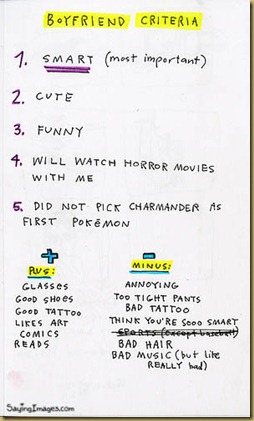 BOYFRIEND CRITERIA
1. SMART (most important)
2. CUTE
3. FUNNY
4. WILL WATCH HORROR MOVIES
WITH ME
5. DID NOT PICK CHARMANDER AS
FIRST POKÉMON
+
PLUS:
GLASSES
GOOD SHOES
GOOD TATTOO
LIKES ART
COMICS
READS
-
MINUS:
ANNOYING
TOO TIGHT PANTS
BAD TATTOO
THINK YOU'RE SOOO SMART
SPORTS (except baseball)
BAD HAIR
BAD MUSIC (but like
REALLY bad)
SayingImages.com